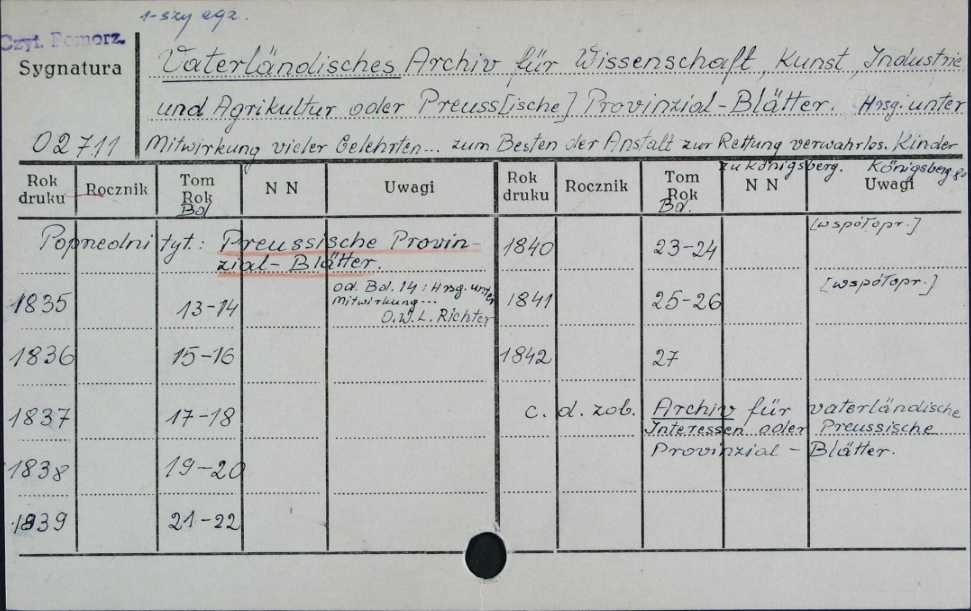 1-szy egz.
Czyt. Pomorz.
Sygnatura
02711
Vaterländisches Archiv für Wissenschaft, Kunst, Industrie
und Agrikultur oder Preuss[ische] Provinzial-Blätter. Hrsg. unter
Mitwirkung vieler Gelehrten... zum Besten der Anstalt zur Rettung verwahrlos. Kinder
zu Königsberg. Königsberg
Rok druku Rocznik Tom Rok Bd N N Uwagi Rok druku Rocznik Tom Rok Bd. N N Uwagi
Poprzedni tyt.: Preussische Provin-
zial-Blätter.
1835 13-14 od Bd. 14: Hrsg. unter
Mitwirkung...
O.W.L. Richter
1836 15-16
1837 17-18
1838 19-20
1839 21-22
1840 23-24 [współopr.]
1841 25-26 [współopr.]
1842 27
c. d. zob. Archiv für vaterländische
Interessen oder Preussische
Provinzial-Blätter.